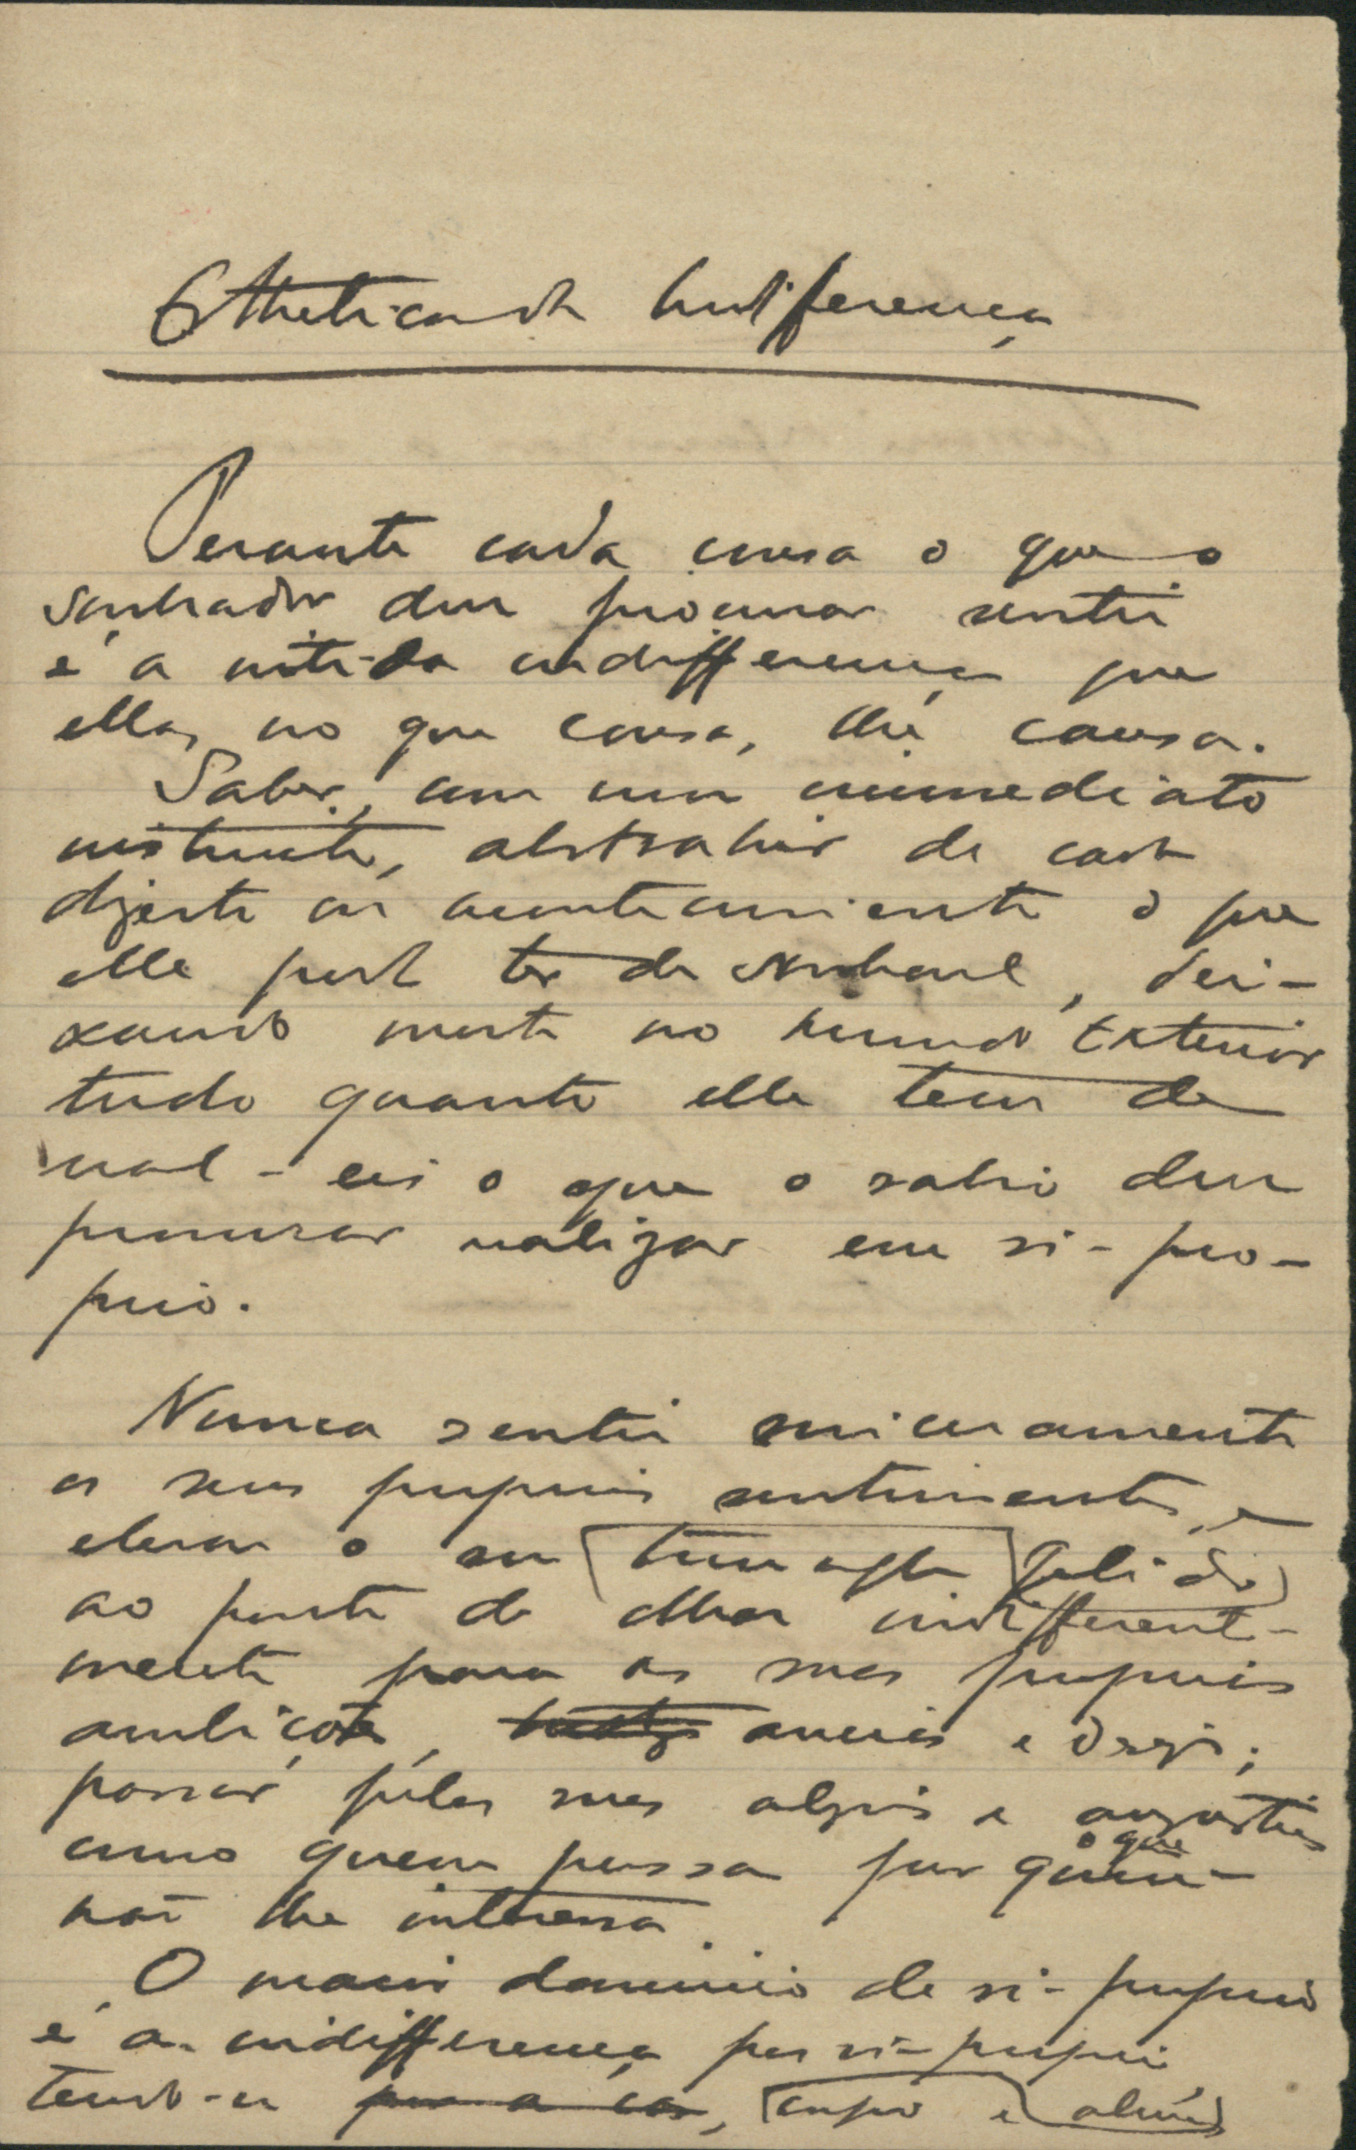 Esthetica da Indifferença
Perante cada cousa o que o
sonhador deve procurar sentir
é a nitida indifferença que
ella, no que cousa, lhe causa.
Saber, com um immediato
instincto, abstrahir de cada
objecto ou acontecimento o que
elle pode ter de sonhavel, dei-
xando morto no mundo exterior
tudo quanto elle tem de
real - eis o que o sabio deve
procurar realizar em si-pro-
prio.
Nunca sentir sinceramente
os seus proprios sentimentos, e
elevar o seu pallido
ao ponto de olhar indifferente-
mente para as suas proprias
ambições, ancias e desejos;
passar pelas suas alegrias e angustias
o que
como quem passa por quem
não lhe interessa.
O maior dominio de si-proprio
é a indifferença por si-proprio,
tendo-se por a casa, corpo e alma,